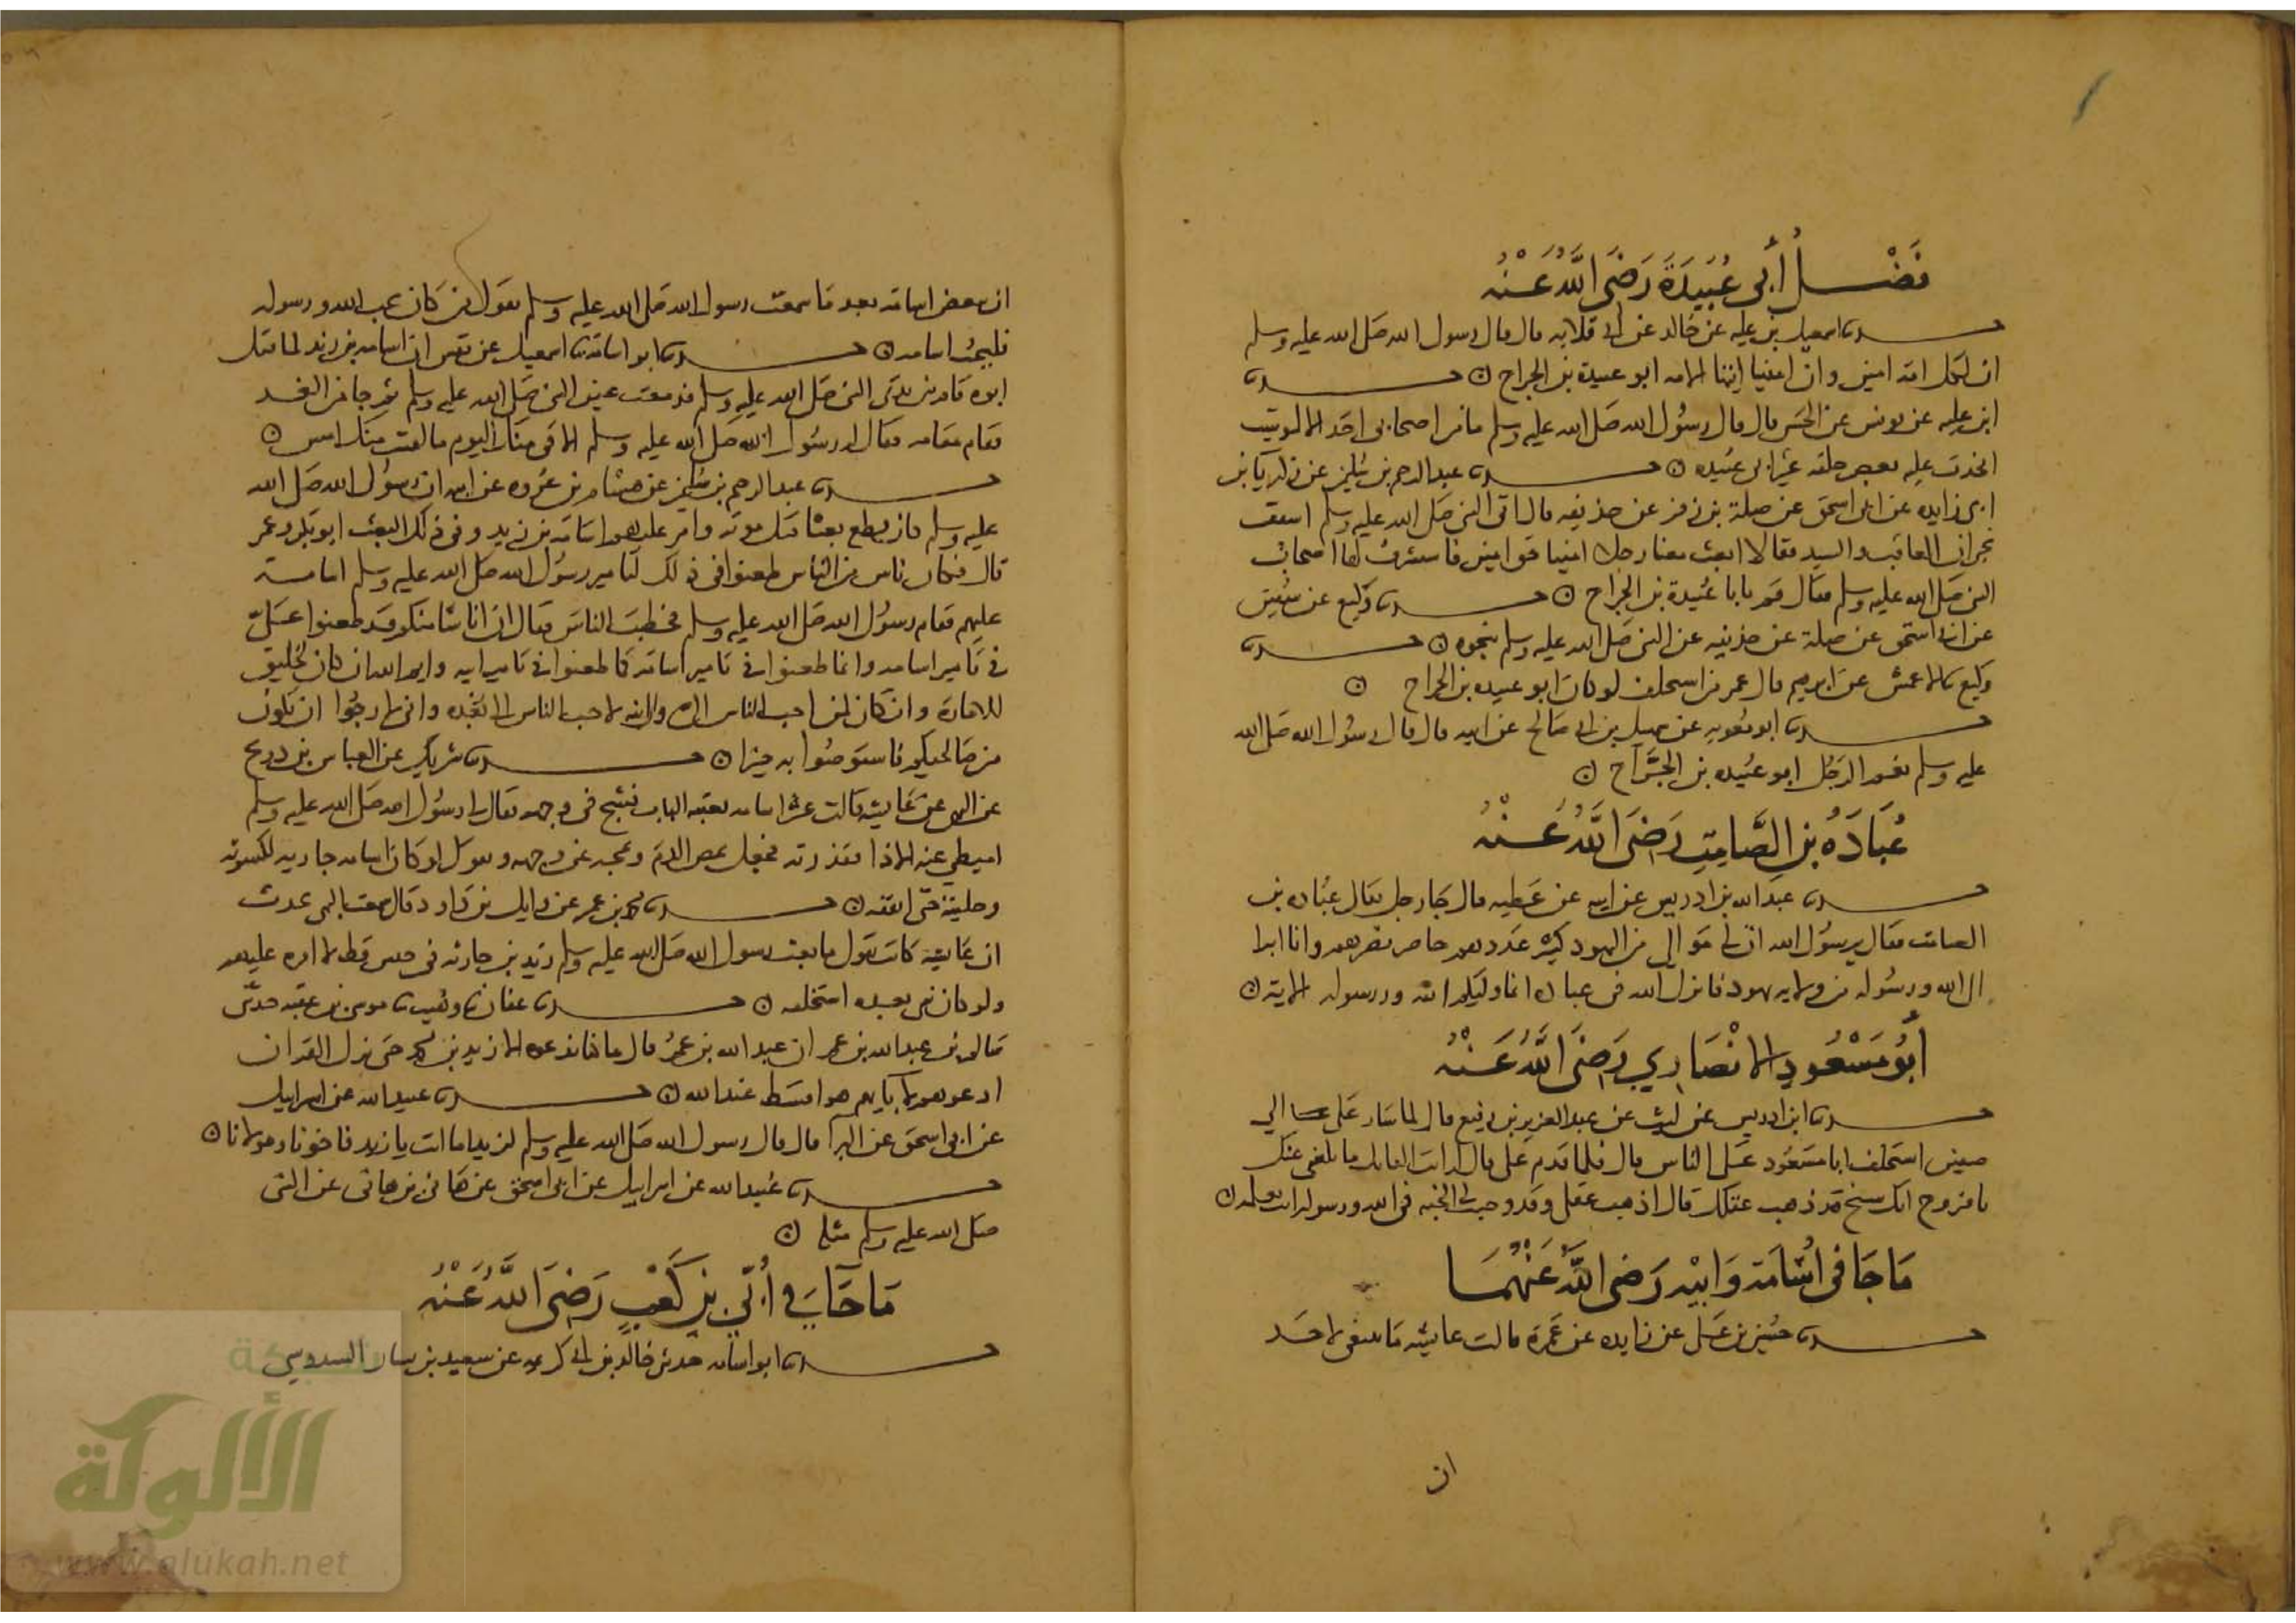 فَضْل أَبي عُبَيدَةَ رَضَيَ اللَّهُ عَنْهُ
نا اسمعيل بن عليه عن خالد عن ابي قلابه قال قال رسول الله صلى الله عليه وسلم
ان لكل امة امين وان اميننا ايتها الامه ابو عبيدة بن الجراح ن نا
ابن عليه عن يونس عن الحسن قال قال رسُول الله صلى الله عليه وسلم ما من اصحابي احد الا لو شيت
اتخذت عليه بعض خلقه غير ابى عُبيده ن نا عبد الرحيم بن سُليمن عن زكريا بن
ابي زايده عن ابى اسحق عن صلة بن زفر عن حذيفه قال اتى النبى صلى الله عليه وسلم اسقف
نجران العاقب والسيد فقالا ابعث معنا رجلا امينا حق امين فاستشرف لها اصحاب
النبى صلى الله عليه وسلم فقال قم يابا عُبيدة بن الجراح ن نا وكيع عن سفين
عن ابى اسحق عن صلة عن حذيفه عن النبى صلى الله عليه وسلم بنحوه ن نا
وكيع نا الاعمش عن ابرهيم قال عمر من استخلف لو كان ابو عبيده بن الجراح ن
نا ابو معويه عن سهيل بن ابى صالح عن ابيه قال قال رسُول الله صلى الله
عليه وسلم نعم الرجُل ابو عُبيده بن الجرَّاح ن
عُبَادَهُ بنِ الصَّامِتِ رَضيَ اللَّهُ عَنْهُ
نا عبد الله بن ادريس عن ابيه عن عَطيه قال جَا رجل يقال عبُاده بن
الصامت فقال يرسُول الله ان لي مَوالي من اليهود كثير عَددهم حاضر نصرهم وانا ابرا
الى الله ورسُوله من ولايه يهود فانزل الله فى عباده انما وليكم الله ورسوله الاية ن
أبُو مَسْعُودٍ الانْصَارِي رَضيَ اللَّهُ عَنْهُ
نا ابن ادريس عن ليث عن عبد العزيز بن رفيع قال لما سَار عَلى الي
صفين استخلف ابا مسَعُود عَلى الناس قال فلما قدم على قال له انت القايل ما بلغنى عنك
يا فروح انك شيخ قد ذهب عقلك قال اذهب عقلى وقد وجبت لى الجنه فى الله ورسوله انت تعلمه ن
مَا جَا فى اُسَامَة وَابِيْه رَضى اللَّه عَنْهُمَا
نا حُسَين بن عَلى عن زايده عن قالت عايشه مَا ينبغى لاحَد
ان
ان يبغض اسامة بعد ما سمعت رسول الله صلى الله عليه وسلم يقول من كان يحب الله ورسوله
فليحبُ اسامه ن نا ابو اسامة نا اسمعيل عن قيس ان اسامه بن زيد لما قتل
ابوه قام بين يدَى النبى صلى الله عليه وسلم فدمعت عينى النبى صلى الله عليه وسلم ثم جا من الغد
فقام مقامه فقال له رسُول الله صلى الله عليه وسلم الاقى منك اليوم ما لقيت منك امس ن
نا عبد الرحيم بن سُليمن عن هشام بن عُروه عن ابيه ان رسُول الله صلى الله
عليه وسلم كان قطع بعثا قبل موته وامر عليهم اسَامة بن زيد وفى ذلك البعث ابو بكر وعمر
قال فكان ناس من الناس طعنوا فى ذلك لتامير رسُول الله صلى الله عليه وسلم اسامة
عليهم فقام رسُول الله صلى الله عليه وسلم فخطب الناسَ فقال ان اناسًا منكم قد طعنوا عَلىّ
فى تَامير اسامه وانما طعنوا فى تامير اسامة كما طعنوا فى تامير ابيه وايم الله ان كان لخليق
للامارة وان كان لمن احب الناس الى وان ابنه لاحب الناس الى بَعْده وانى لارجُوا ان يكون
من صَالحيكم فاستوصُوا به خيرا ن نا شريك عن العباس بن ذريح
عن البهى عن عَايشه قالت عثر اسامه بعتبه الباب فشج فى وجهه فقال لى رسُول الله صلى الله عليه وسلم
اميطى عنه الاذا فقذرته فجعل يمص الدم ويمجه عن وجهه ويقول لو كان اسامه جاريه لكسوته
وحليته حتى انفقه ن نا محمد بن عمر عن وايل بن دَاود قال سمعت البهى يحدث
ان عَايشه كانت تقول ما بعث رسول الله صلى الله عليه وسلم زيد بن حارثه فى جيش قط الا امره عليهم
ولو كان بقى بعده استخلفه ن نا عفان نا وهيب نا موسى بن عقبه حدثنى
سَالم بن عبد الله بن عمر ان عبد الله بن عمرُ قال ما كنا ندعوه الا زيد بن محمد حتى نزل القران
ادعوهم لابايهم هو اقسَط عند الله ن نا عبيد الله عن اسرايل
عن ابى اسحق عن البرآ قال قال رسول الله صلى الله عليه وسلم لزيد اما انت يا زيد فاخونا ومولانا ن
نا عُبيد الله عن اسرايل عن ابى اسحق عن هَانى بن هانى عن النبى
صلى الله عليه وسلم مثله ن
مَا جَآ فِي أُبَيّ بنِ كَعْبٍ رَضيَ اللَّهُ عَنْهُ
نا ابو اسامه حدثنى خالد بن ابى كريمه عن سعيد بن يسار السدوسي
شبكة
الألوكة
www.alukah.net